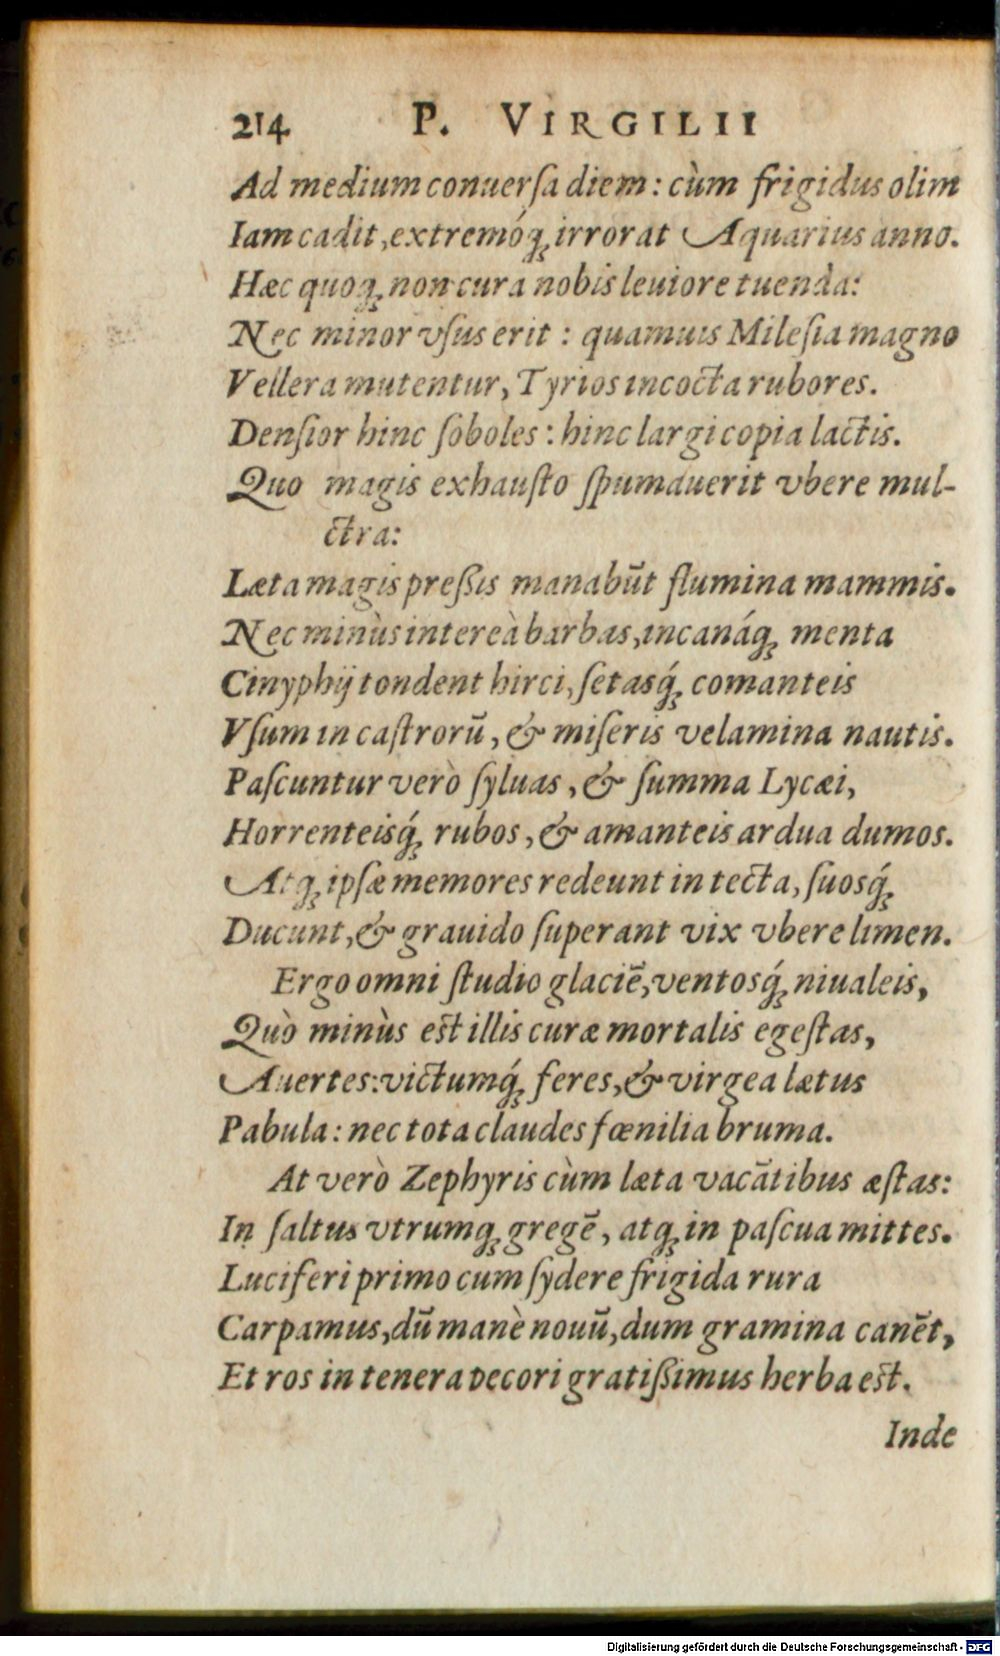 214 P. VIRGILII
Ad medium conuerſa diem: cùm frigidus olim
Iam cadit, extremóq́ꝫ irrorat Aquarius anno.
Hæc quoqꝫ non cura nobis leuiore tuenda:
Nec minor vſus erit: quamuis Mileſia magno
Vellera mutentur, Tyrios incocta rubores.
Denſior hinc ſoboles: hinc largi copia lactis.
Quo magis exhauſto ſpumauerit vbere mul-
ctra:
Læta magis preſſis manabūt flumina mammis.
Nec minùs intereà barbas, incanáqꝫ menta
Cinyphij tondent hirci, ſetasq́ꝫ comanteis
Vſum in caſtrorū, & miſeris velamina nautis.
Paſcuntur verò ſyluas, & ſumma Lycæi,
Horrenteisq́ꝫ rubos, & amanteis ardua dumos.
Atqꝫ ipſæ memores redeunt in tecta, ſuosq́ꝫ
Ducunt, & grauido ſuperant vix vbere limen.
Ergo omni ſtudio glaciē, ventosq́ꝫ niualeis,
Quò minùs est illis curæ mortalis egeſtas,
Auertes: victumq́ꝫ feres, & virgea lætus
Pabula: nec tota claudes fœnilia bruma.
At verò Zephyris cùm læta vacātibus æſtas:
In ſaltus vtrumqꝫ gregē, atqꝫ in paſcua mittes.
Luciferi primo cum ſydere frigida rura
Carpamus, dū manè nouū, dum gramina canēt,
Et ros in tenera pecori gratiſſimus herba est.
Inde
Digitalisierung gefördert durch die Deutsche Forschungsgemeinschaft - DFG